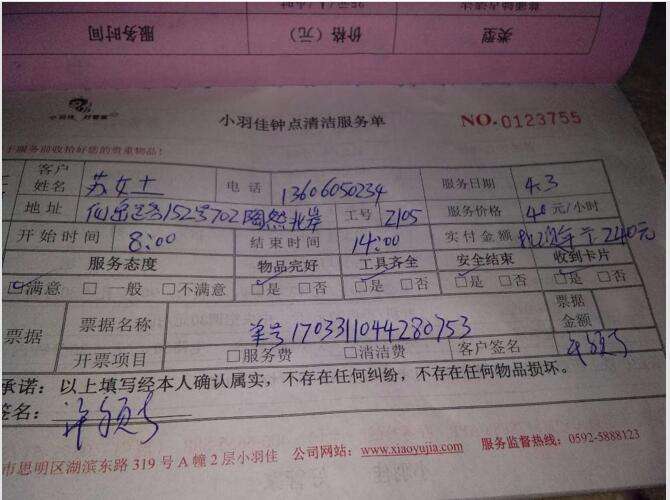 类型 价格（元） 服务时间
小羽佳
小羽佳钟点清洁服务单
NO.0123755
于服务前收拾好您的贵重物品！
客户姓名 苏女士 电话 13606050234 服务日期 4.3
地址 152号702 陶然北岸 工号 2105 服务价格 40元/小时
开始时间 8:00 结束时间 14:00 实付金额 240元
服务态度 物品完好 工具齐全 安全结束 收到卡片
☑满意 □一般 □不满意 ☑是 □否 ☑是 □否 ☑是 □否 ☑是 □否
票据 票据名称 单号1703311044280753 票据金额
开票项目 □服务费 □清洁费 客户签名
承诺：以上填写经本人确认属实，不存在任何纠纷，不存在任何物品损坏。
签名：
市思明区湖滨东路319号A幢2层小羽佳 公司网站：www.xiaoyujia.com 服务监督热线：0592-5888123